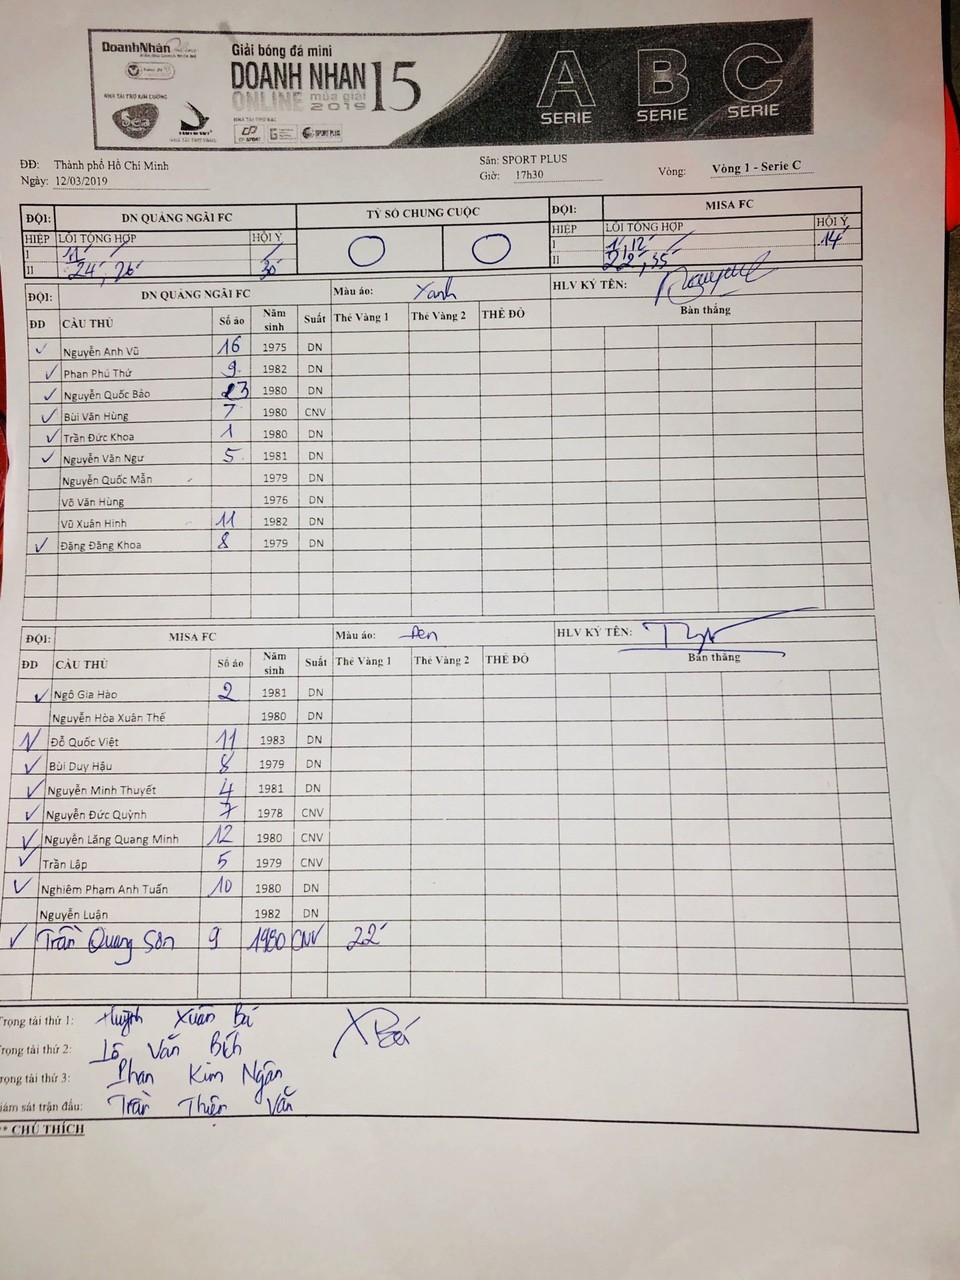 DoanhNhân
Giải bóng đá mini
DOANH NHAN 15
ONLINE mùa giải 2019
NHÀ TÀI TRỢ KIM CƯƠNG
NHÀ TÀI TRỢ BẠC
Sea
CP SPORT
SPORT PLUS
A SERIE B SERIE C SERIE
ĐĐ: Thành phố Hồ Chí Minh Sân: SPORT PLUS
Ngày: 12/03/2019 Giờ: 17h30 Vòng: Vòng 1 - Serie C
ĐỘI: DN QUẢNG NGÃI FC TỶ SỐ CHUNG CUỘC ĐỘI: MISA FC
HIỆP LỖI TỔNG HỢP HỘI Ý O O HIỆP LỖI TỔNG HỢP HỘI Ý
I 11' I 1', 12' 14'
II 24', 26' 30' II 22', 35'
ĐỘI: DN QUẢNG NGÃI FC Màu áo: Xanh HLV KÝ TÊN:
ĐD CẦU THỦ Số áo Năm sinh Suất Thẻ Vàng 1 Thẻ Vàng 2 THẺ ĐỎ Bàn thắng
✓ Nguyễn Anh Vũ 16 1975 DN
✓ Phan Phú Thứ 9 1982 DN
✓ Nguyễn Quốc Bảo 23 1980 DN
✓ Bùi Văn Hùng 7 1980 CNV
✓ Trần Đức Khoa 1 1980 DN
✓ Nguyễn Văn Ngư 5 1981 DN
Nguyễn Quốc Mẫn 1979 DN
Võ Văn Hùng 1976 DN
Vũ Xuân Hinh 11 1982 DN
✓ Đặng Đăng Khoa 8 1979 DN
ĐỘI: MISA FC Màu áo: Đen HLV KÝ TÊN:
ĐD CẦU THỦ Số áo Năm sinh Suất Thẻ Vàng 1 Thẻ Vàng 2 THẺ ĐỎ Bàn thắng
✓ Ngô Gia Hào 2 1981 DN
Nguyễn Hòa Xuân Thế 1980 DN
✓ Đỗ Quốc Việt 11 1983 DN
✓ Bùi Duy Hậu 8 1979 DN
✓ Nguyễn Minh Thuyết 4 1981 DN
✓ Nguyễn Đức Quỳnh 7 1978 CNV
✓ Nguyễn Lăng Quang Minh 12 1980 CNV
✓ Trần Lập 5 1979 CNV
✓ Nghiêm Phạm Anh Tuấn 10 1980 DN
Nguyễn Luận 1982 DN
✓ Trần Quang Sơn 9 1980 CNV 22'
Trọng tài thứ 1: Huỳnh Xuân Bá
Trọng tài thứ 2: Lê Văn Bích
Trọng tài thứ 3: Phan Kim Ngân
Giám sát trận đấu: Trần Thiện Văn
** CHÚ THÍCH